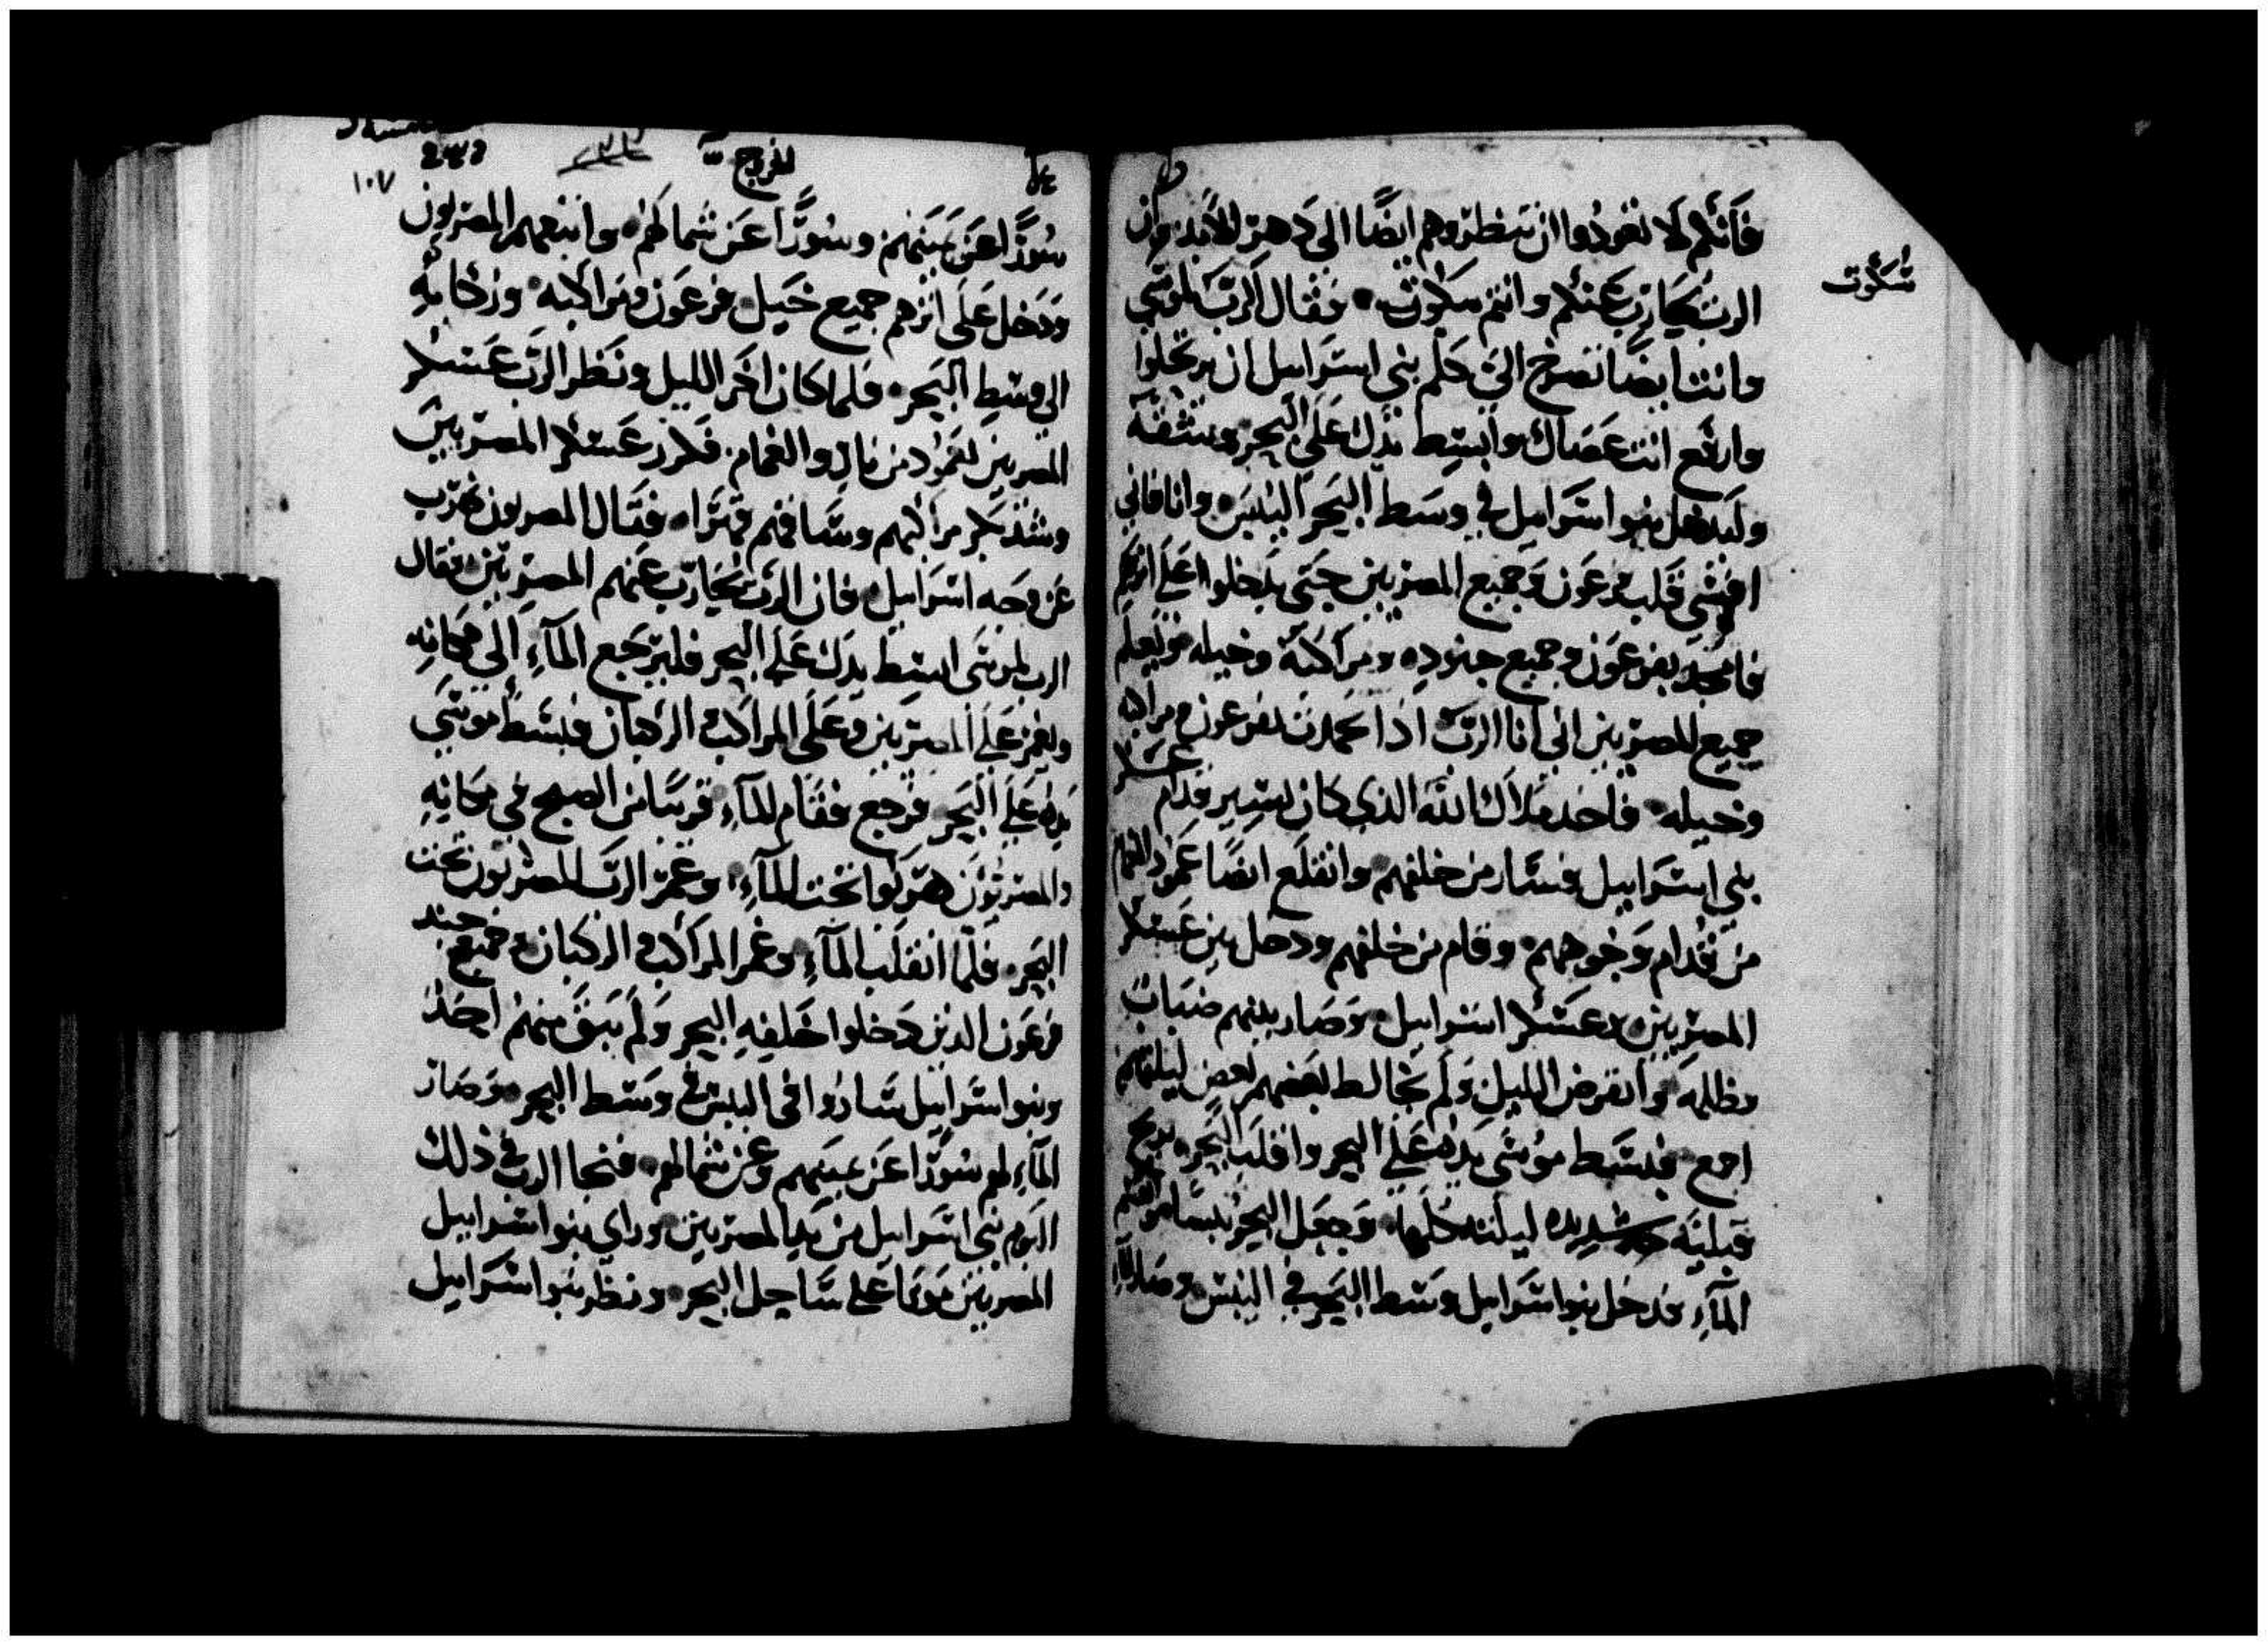 فانكم لا تعودوا ان تنظروهم ايضًا الى دهر للابد وان
الرب يحارب عنكم وانتم سكوت فقال الرب لموسي
سُكوت
وانت ايضًا تصرخ الىّ كلم بني اسراييل ان يرتحلوا
وارفع انت عصاك وابسط يدك على البحر وشقه
وليدخل بنو اسراييل في وسط البحر اليبس وانا فاني
اقسّي قلب فرعون وجميع المصريين حتى يدخلوا على اثركم
فاتمجد بفرعون وجميع جنوده ومراكبه وخيله ويعلم
جميع المصريين اني انا الرب اذا تمجدت بفرعون ومراكبه
وخيله فاخد ملاك الله الذي كان يسير قدام عسكر
بني اسراييل فسار من خلفهم وانقلع ايضًا عمود الغمام
من قدام وجوههم وقام من خلفهم ودخل بين عسكر
المصريين وعسكر اسراييل وصار بينهم ضباب
وظلمه وانقرض الليل ولم يخالط بعضهم بعض ليلتهم
اجمع فبسط موسى يده على البحر واقلب البحر بريح
قبليّه شديده ليلته كلها وجعل البحر يبسًا وانقسم
المآءِ فدخل بنو اسراييل وسط البحر في اليبس وصار المآءِ
الخروج
١٠٧
سُورًا عن يمينهم وسورًا عن شمالهم واتبعهم المصريون
ودخل على اثرهم جميع خيل فرعون ومراكبه وركابهِ
الى وسط البحر فلما كان اخر الليل ونظر الرب عسكر
المصريين بعمود من نار والغمام فكدر عسكر المصريين
وشد بكر مراكبهم وساقهم قهرًا فقال المصريون نهرب
عن وجه اسراييل فان الرب يحارب عنهم المصريين فقال
الرب لموسى ابسط يدك على البحر فليرجع المآءِ الى مكانه
وليغمر على المصريين وعلى المراكب الركبان فبسط موسي
يده على البحر فرجع فقام المآءِ قريبًا من الصبح في مكانِهِ
والمصريون هربوا تحت المآءِ وغمر الرب المصريون تحت
البحر فلما انقلب المآءِ وغمر المراكب الركبان وجميع جند
فرعون الذين دخلوا خلفهِ البحر ولم يبق منهم احدٌ
وبنو اسراييل ساروا في اليبس في وسط البحر وصار
المآءِ لهم سورًا عن يمينهم وعن شمالهم فنجا الرب في ذلك
اليوم بني اسراييل من يد المصريين وراي بنو اسراييل
المصريين موتا على ساحل البحر ونظر بنو اسراييل